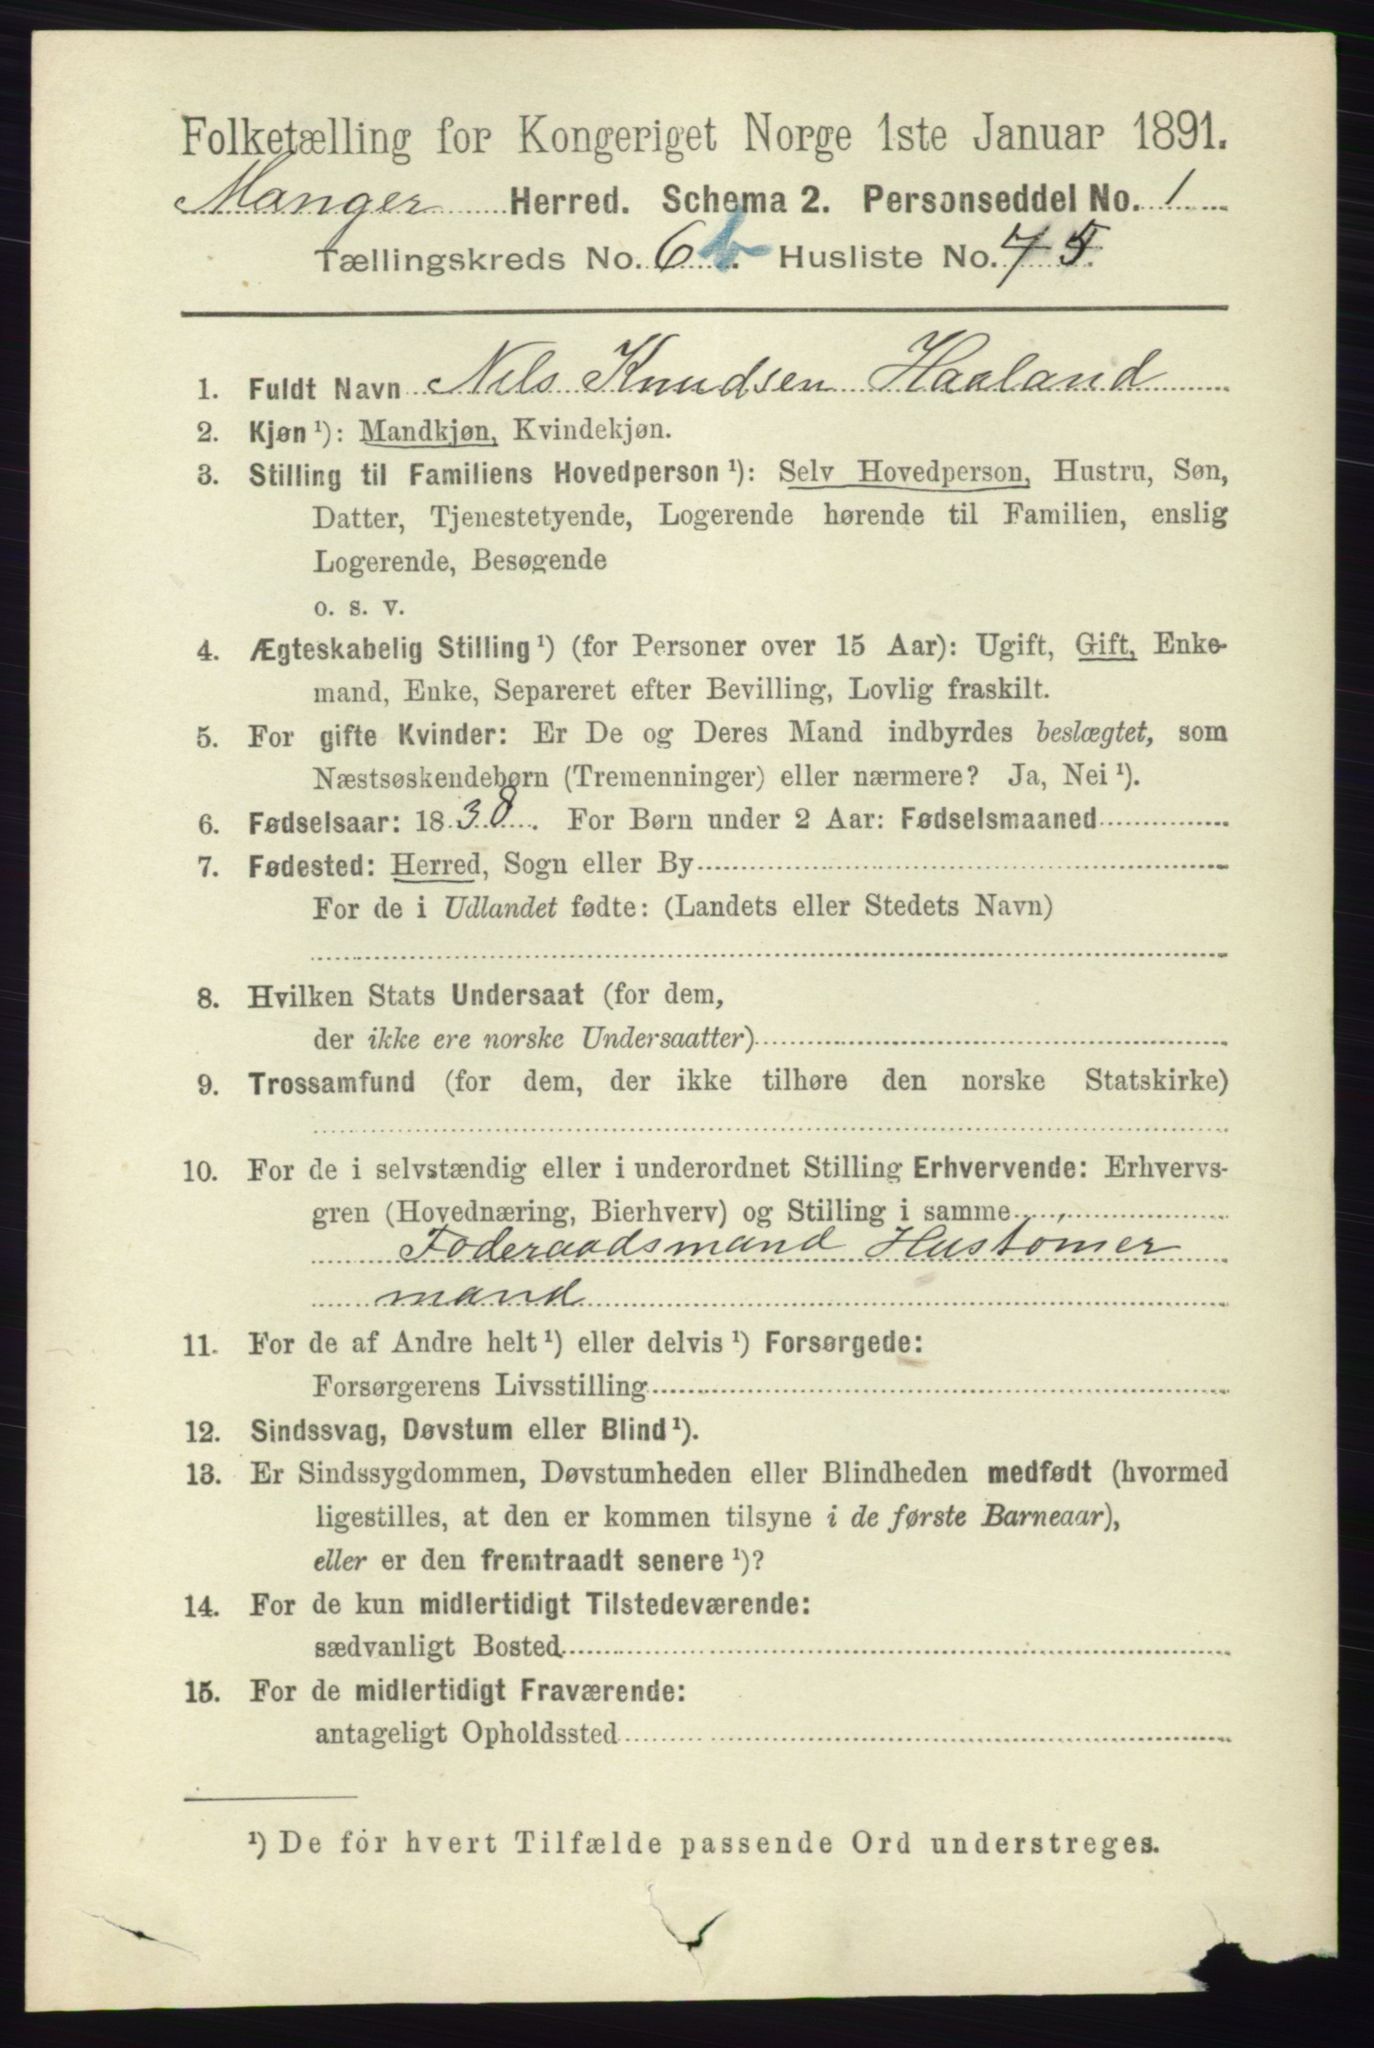 Folketælling for Kongeriget Norge 1ste Januar 1891.
Manger Herred. Schema 2. Personseddel No. 1
Tællingskreds No. 6 b. Husliste No. 45.
1. Fuldt Navn Nils Knudsen Haaland
2. Kjøn ¹): Mandkjøn, Kvindekjøn.
3. Stilling til Familiens Hovedperson ¹): Selv Hovedperson, Hustru, Søn,
Datter, Tjenestetyende, Logerende hørende til Familien, enslig
Logerende, Besøgende
o. s. v.
4. Ægteskabelig Stilling ¹) (for Personer over 15 Aar): Ugift, Gift, Enke-
mand, Enke, Separeret efter Bevilling, Lovlig fraskilt.
5. For gifte Kvinder: Er De og Deres Mand indbyrdes beslægtet, som
Næstsøskendebørn (Tremenninger) eller nærmere? Ja, Nei ¹).
6. Fødselsaar: 1838. For Børn under 2 Aar: Fødselsmaaned
7. Fødested: Herred, Sogn eller By
For de i Udlandet fødte: (Landets eller Stedets Navn)
8. Hvilken Stats Undersaat (for dem,
der ikke ere norske Undersaatter)
9. Trossamfund (for dem, der ikke tilhøre den norske Statskirke)
10. For de i selvstændig eller i underordnet Stilling Erhvervende: Erhvervs-
gren (Hovednæring, Bierhverv) og Stilling i samme
Foderaadsmand Hustømer
mand
11. For de af Andre helt ¹) eller delvis ¹) Forsørgede:
Forsørgerens Livsstilling
12. Sindssvag, Døvstum eller Blind ¹).
13. Er Sindssygdommen, Døvstumheden eller Blindheden medfødt (hvormed
ligestilles, at den er kommen tilsyne i de første Barneaar),
eller er den fremtraadt senere ¹)?
14. For de kun midlertidigt Tilstedeværende:
sædvanligt Bosted
15. For de midlertidigt Fraværende:
antageligt Opholdssted
¹) De for hvert Tilfælde passende Ord understreges.